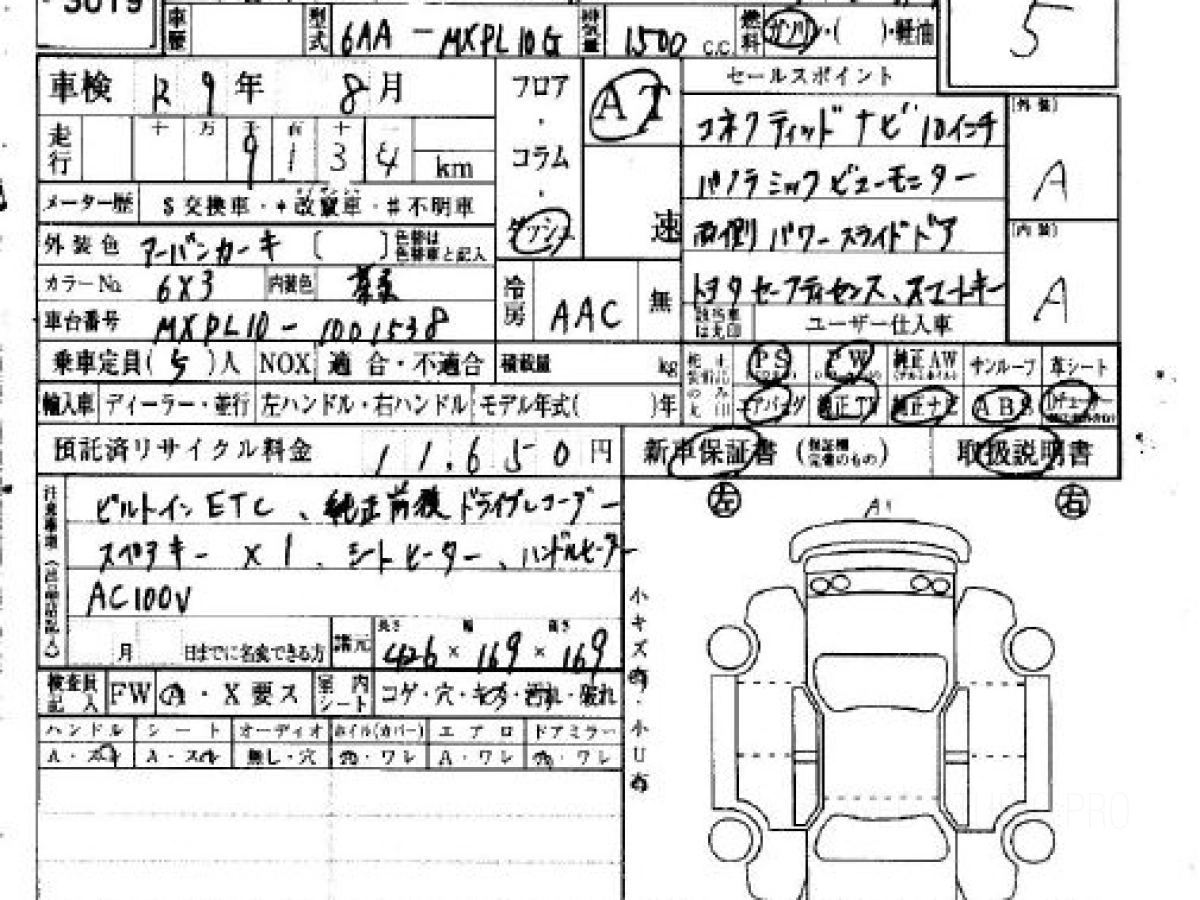 3019
車歴 型式 6AA - MXPL10G 排気量 1500 C.C. 燃料 ガソリン・( )・軽油 5
車検 R 9 年 8 月 フロア・コラム・ダッシュ AT 速 セールスポイント
コネクティッドナビ 10インチ [外装] A
走行 十 万 千 百 十 一 9 1 3 4 km
パノラミックビューモニター
メーター歴 $ 交換車・* 改竄車・# 不明車
両側パワースライドドア [内装] A
外装色 アーバンカーキ ( ) 色替は色替車と記入
カラーNo. 6X3 内装色 冷房 AAC 無
トヨタセーフティセンス、スマートキー
車台番号 MXPL10 - 1001538 該当車は丸印 ユーザー仕入車
乗車定員( 5 )人 NOX 適合・不適合 積載量 kg PS PW 純正AW サンルーフ 革シート
輸入車 ディーラー・並行 左ハンドル・右ハンドル モデル年式( )年 エアバッグ 純正TV 純正ナビ ABS
預託済リサイクル料金 11,650 円 新車保証書 (保証欄完備のもの) 取扱説明書
左 右
ビルトインETC、純正前後ドライブレコーダー
A1
スペアキー X 1、シートヒーター、ハンドルヒーター
AC100V
月 日までに名変できる方 諸元 長さ 幅 高さ 426 × 169 × 169
検査員記入 FW A・X要ス 室内シート コゲ・穴・キズ・汚れ・破れ
ハンドル シート オーディオ ホイル(カバー) エアロ ドアミラー
A・スレ A・スレ 無し・穴 角・ワレ A・ワレ 角・ワレ
小キズ有・小U有
PRO